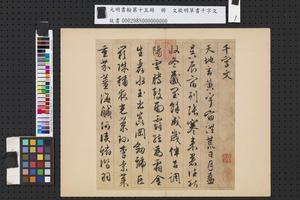 元明書翰第十五冊 冊 文徵明草書千字文
故書000298500000000
千字文
天地玄黃宇宙洪荒日月盈
昃辰宿列張寒來暑往秋
收冬藏閏餘成歲律呂調
陽雲騰致雨露結為霜金
生麗水玉出崑岡劍號巨
闕珠稱夜光菓珍李柰菜
重芥薑海鹹河淡鱗潛羽